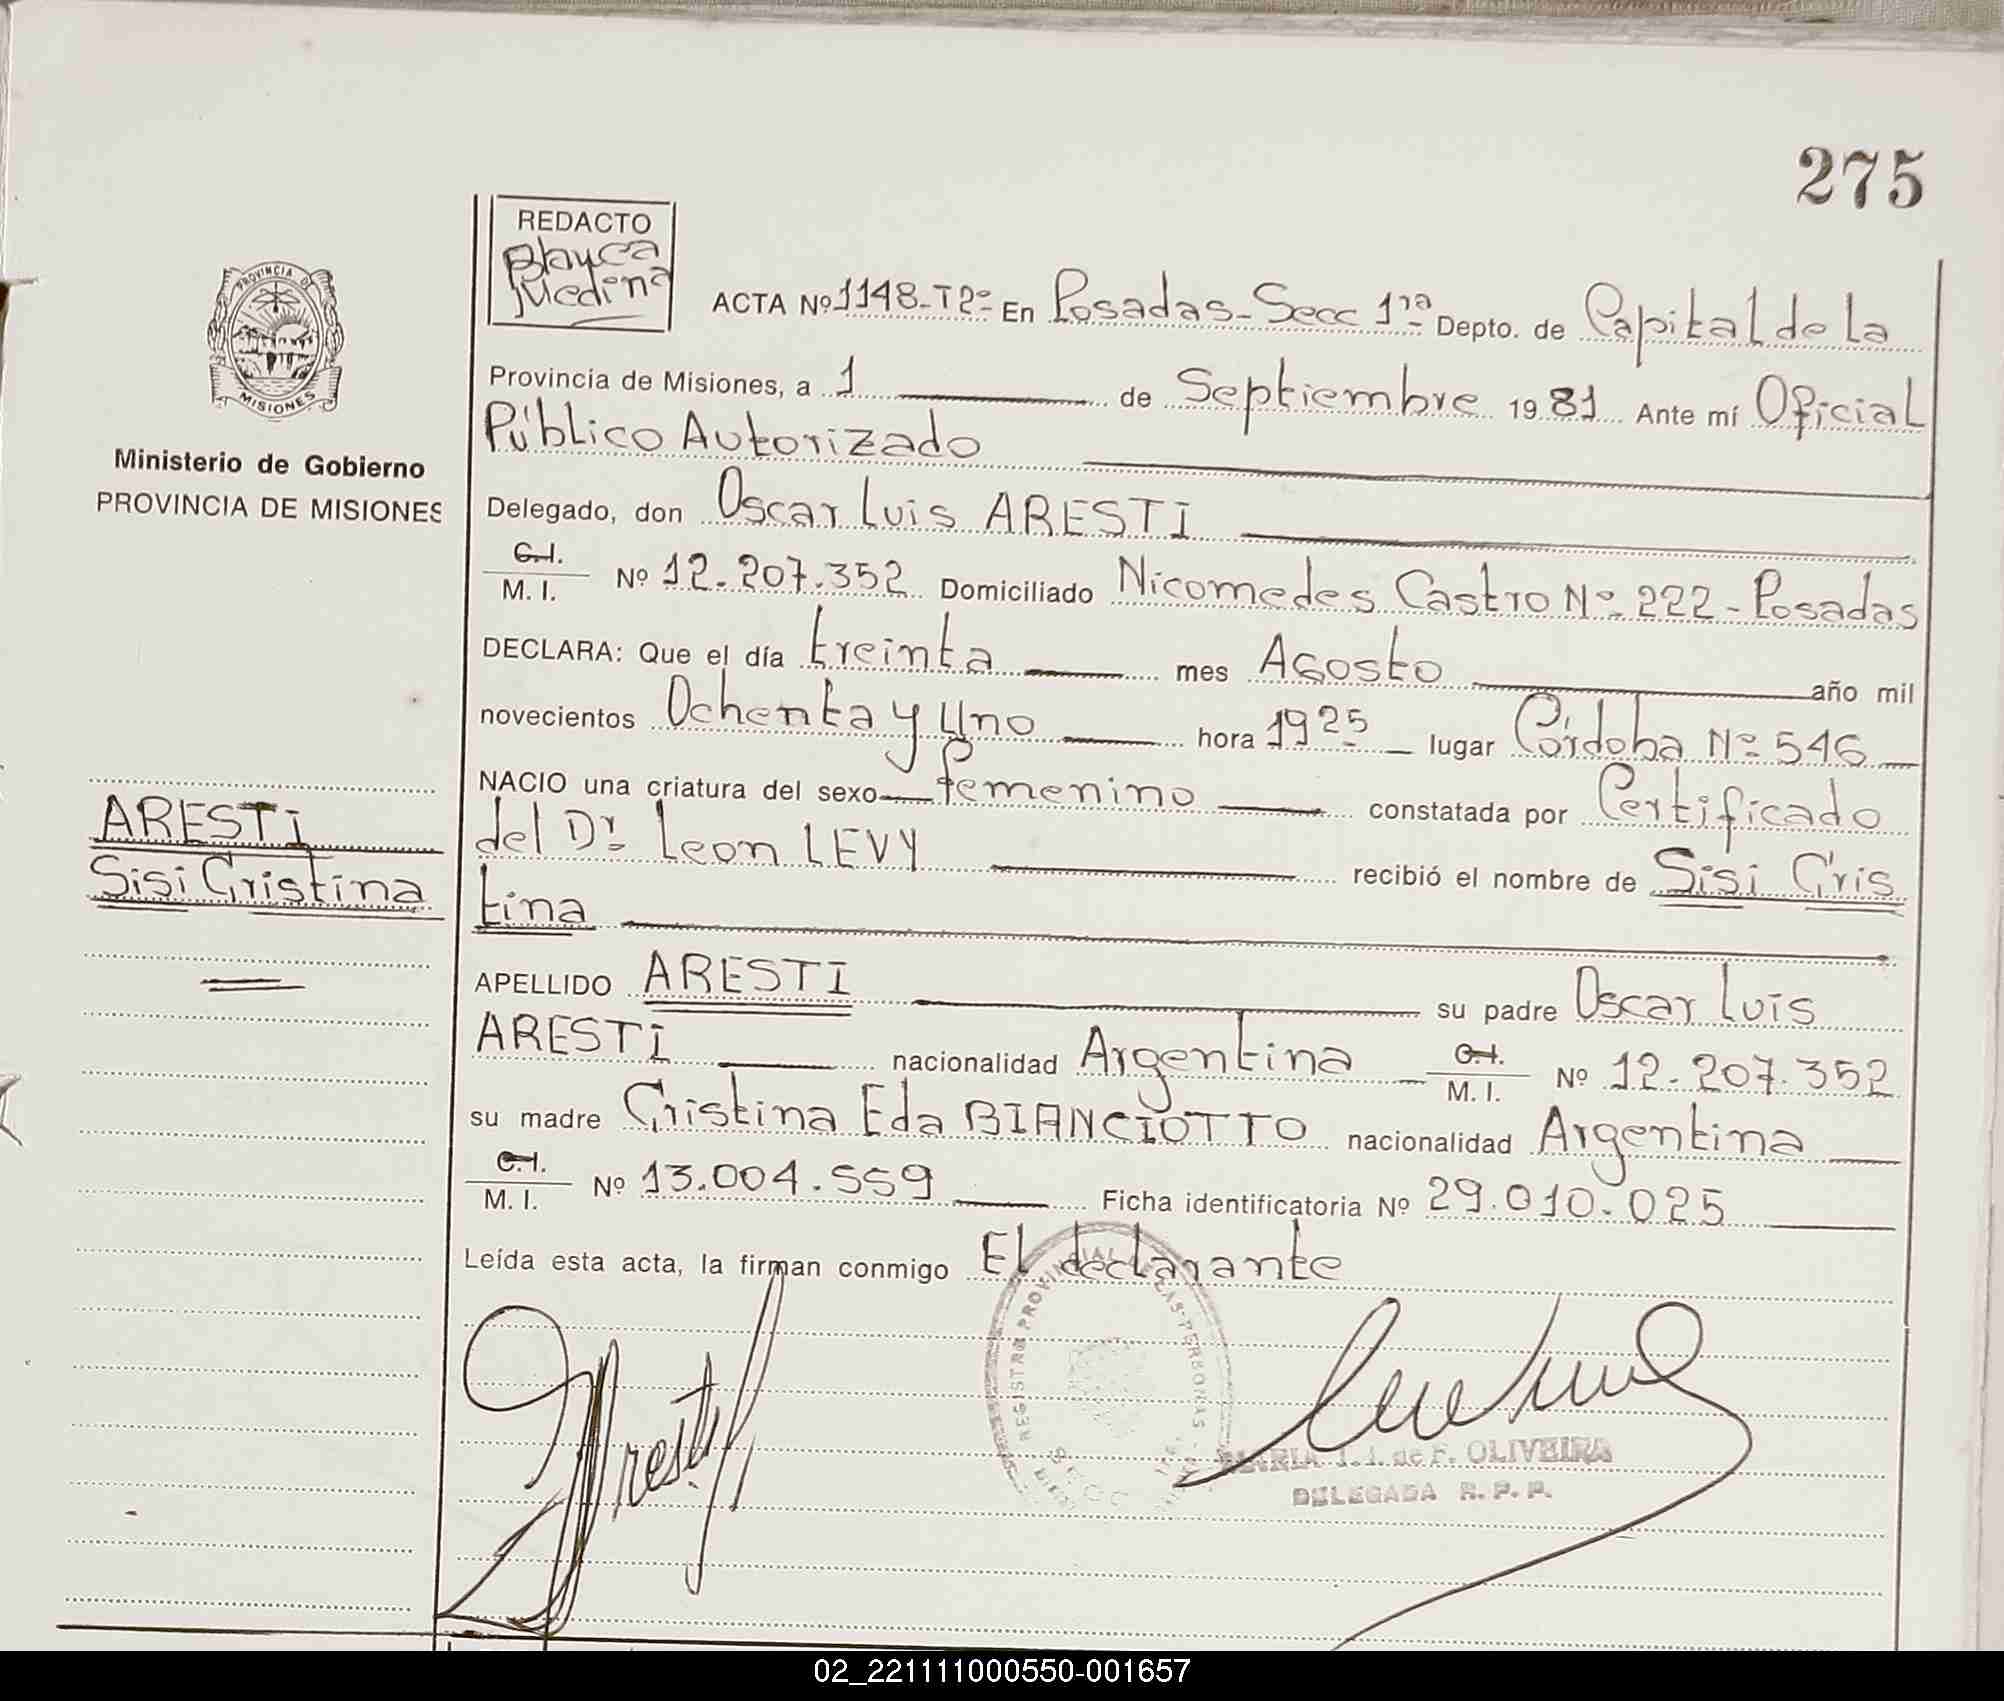 275
REDACTO
Blanca
Medina
ACTA Nº 1148-T2º En Posadas-Secc 1ra Depto. de Capital de la
PROVINCIA DE
MISIONES
Provincia de Misiones, a 1 de Septiembre 1981 Ante mí Oficial
Público Autorizado
Ministerio de Gobierno
PROVINCIA DE MISIONES
Delegado, don Oscar Luis ARESTI
C.I.
M. I. Nº 12.207.352 Domiciliado Nicomedes Castro Nº 222-Posadas
DECLARA: Que el día treinta mes Agosto año mil
novecientos Ochenta y Uno hora 1925 lugar Córdoba Nº 546
NACIO una criatura del sexo femenino constatada por Certificado
del Dr. Leon LEVY recibió el nombre de Sisi Cris
tina
ARESTI
Sisi Cristina
APELLIDO ARESTI su padre Oscar Luis
ARESTI nacionalidad Argentina C.I.
M. I. Nº 12.207.352
su madre Cristina Eda BIANCIOTTO nacionalidad Argentina
C.I.
M. I. Nº 13.004.559 Ficha identificatoria Nº 29.010.025
Leída esta acta, la firman conmigo El declarante
REGISTRO PROVINCIAL DE LAS PERSONAS
Aresti
MARIA I. I. de F. OLIVEIRA
DELEGADA R. P. P.
02_221111000550-001657